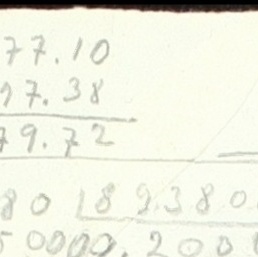 77.10
97.38
79.72
80 18 9.380
50000.200